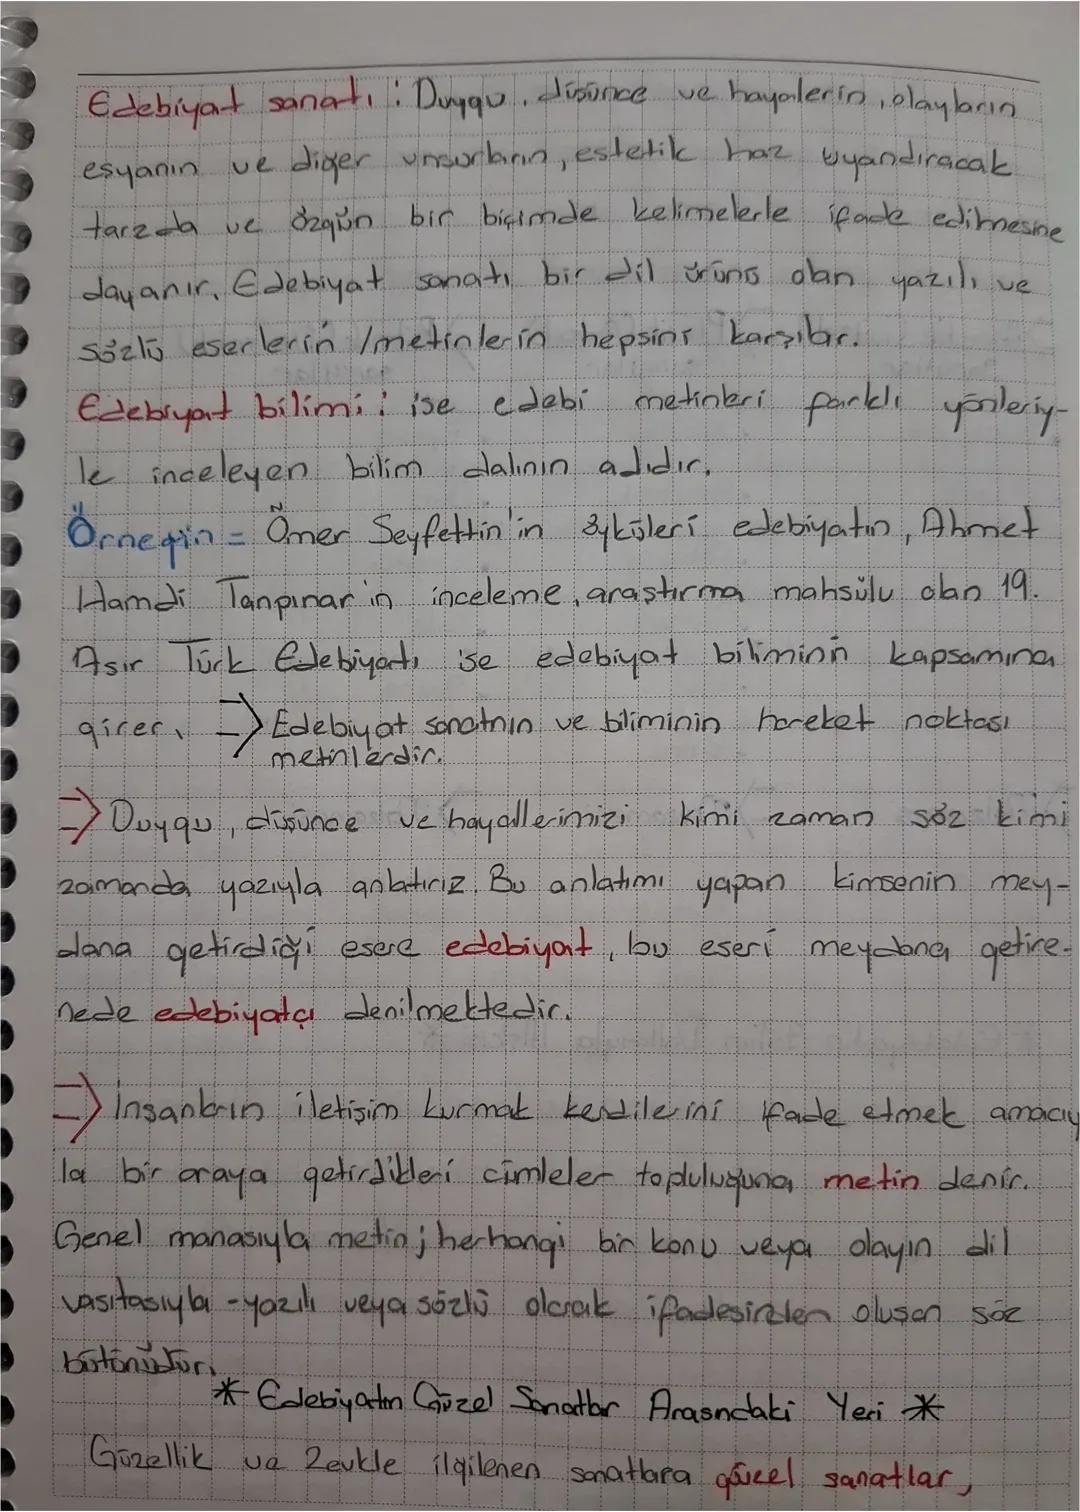 Edebiyat sanatı : Duygu, düşünce ve hayallerin, olayların
eşyanın ve diğer unsurların, estetik haz uyandıracak
tarzda ve özgün bir biçimde kelimelerle ifade edilmesine
dayanır. Edebiyat sanatı bir dil ürünü olan yazılı ve
sözlü eserlerin /metinlerin hepsini karşılar.
Edebiyat bilimi : ise edebi metinleri farklı yönleriy-
le inceleyen bilim dalının adıdır.
Örneğin = Ömer Seyfettin'in öyküleri edebiyatın, Ahmet
Hamdi Tanpınar'ın inceleme, araştırma mahsülu olan 19.
Asır Türk Edebiyatı ise edebiyat biliminin kapsamına
girer. => Edebiyat sanatının ve biliminin hareket noktası
metinlerdir.
=> Duygu, düşünce ve hayallerimizi kimi zaman söz kimi
zamanda yazıyla anlatırız. Bu anlatımı yapan kimsenin mey-
dana getirdiği esere edebiyat, bu eseri meydana getire-
nede edebiyatçı denilmektedir.
=> İnsanların iletişim kurmak kendilerini ifade etmek amacıy
la bir araya getirdikleri cümleler topluluğuna metin denir.
Genel manasıyla metin; herhangi bir konu veya olayın dil
vasıtasıyla -yazılı veya sözlü olarak ifadesinden oluşan söz
bütünüdür.
* Edebiyatın Güzel Sanatlar Arasındaki Yeri *
Güzellik ve Zevkle ilgilenen sanatlara güzel sanatlar,